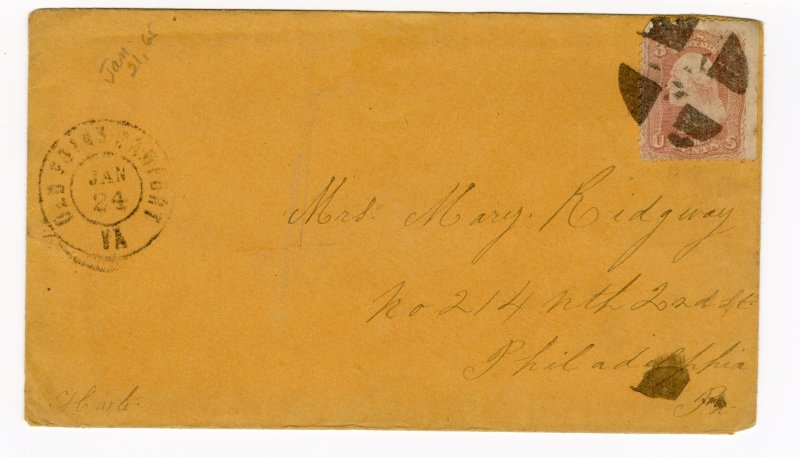 Jan
21, 65
OLD POINT COMFORT
JAN
24
VA
U S
CENTS
Mrs. Mary. Ridgway
No 214 Nth 2nd St.
Philadelphia
Pa.
Haste.